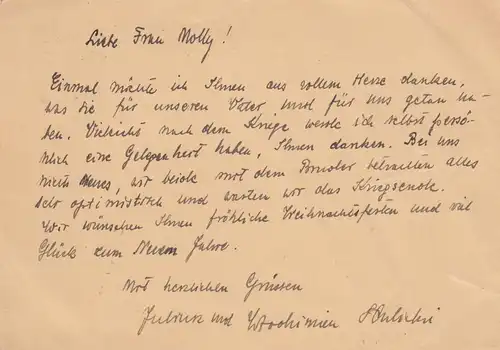 Liebe Frau Molly!
Einmal möchte ich Ihnen aus vollem Herze danken,
was die für unseren Vater und für uns getan ha-
ben. Vielleicht nach dem Kriege werde ich selbst persö-
nlich eine Gelegenheit haben, Ihnen danken. Bei uns
nichts Neues, wir beide mit dem Bruder betrachten alles
sehr optimistisch und warten wir das Kriegsende.
Wir wünschen Ihnen fröhliche Weihnachtsfesten und viel
Glück zum Neuen Jahre.
Mit herzlichen Grüssen
und